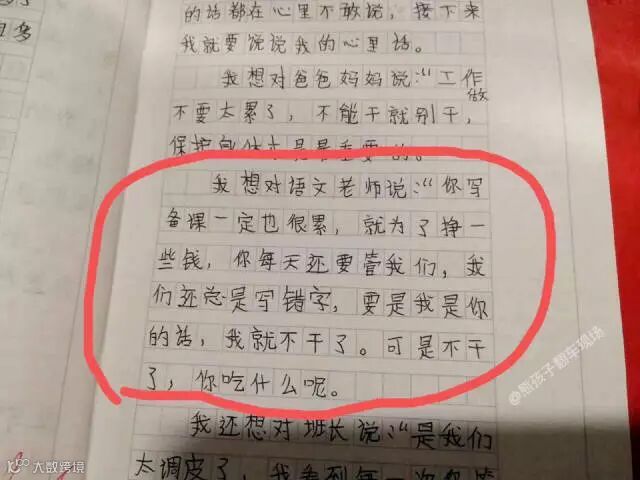 的话都在心里不敢说，接下来
我就要说说我的心里话。
我想对爸爸妈妈说：“工作做
不要太累了，不能干就别干，
保护身体才是最重要的。
我想对语文老师说：“你写
备课一定也很累，就为了挣一
些钱，你每天还要管我们，我
们还总是写错字，要是我是你
的话，我就不干了。可是不干
了，你吃什么呢。
我还想对班长说：“是我们
太调皮了，我看到每一次你管
@熊孩子翻车现场
大数跨境